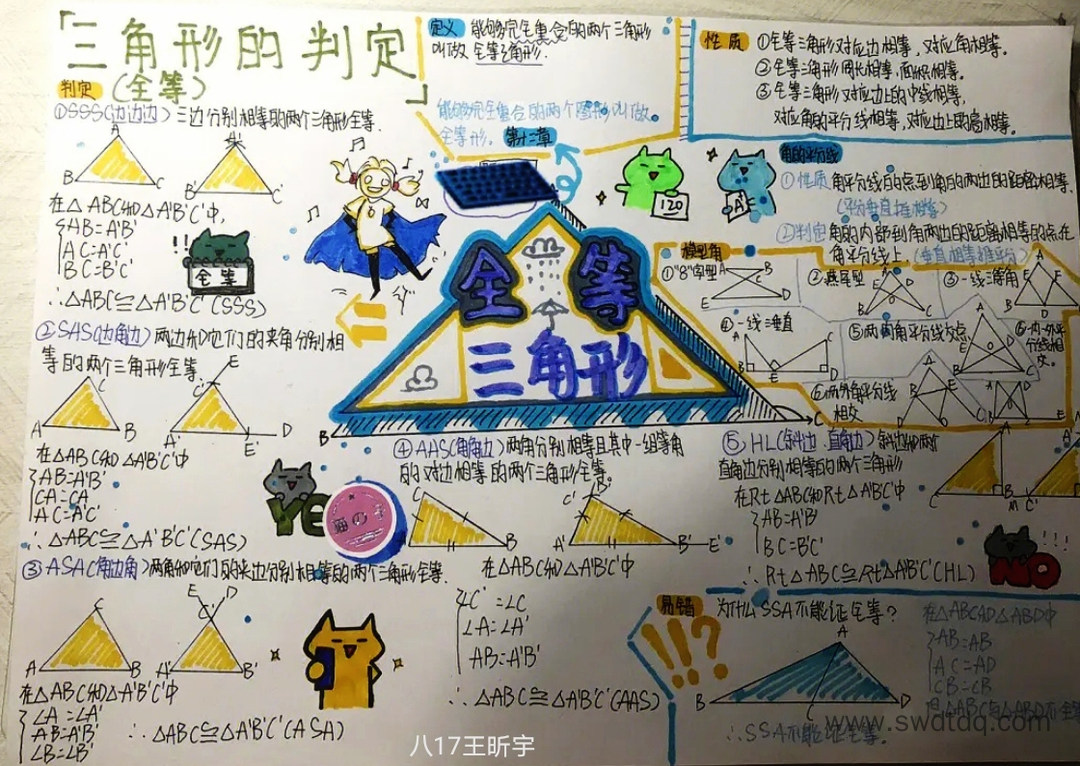 「三角形的判定
(全等)」
判定
①SSS(边边边) 三边分别相等的两个三角形全等.
A
B
C
A'
B'
C'
在△ABC和△A'B'C'中,
AB=A'B'
AC=A'C'
BC=B'C'
∴△ABC≌△A'B'C'(SSS)
!!
全等
②SAS(边角边) 两边和它们的夹角分别相
等的两个三角形全等.
C
A
B
E
C'
A'
B'
E
D
在△ABC和△A'B'C'中
AB=A'B'
CA=CA'
AC=A'C'
∴△ABC≌△A'B'C'(SAS)
③ASA(角边角) 两角和它们的夹边分别相等的两个三角形全等.
C
A
B
E
D
C'
A'
B'
在△ABC和△A'B'C'中
∠A=∠A'
AB=A'B'
∠B=∠B'
∴△ABC≌△A'B'C'(ASA)
定义 能够完全重合的两个三角形
叫做 全等三角形.
能够完全重合的两个图形叫做
全等形.
第十二章
性质 ①全等三角形对应边相等,对应角相等.
②全等三角形周长相等,面积相等.
③全等三角形对应边上的中线相等,
对应角的平分线相等,对应边上的高相等.
120
角的平分线
①性质 角平分线上的点到角的两边的距离相等.
②判定 角的内部到角两边的距离相等的点在
角平分线上.
全等
三角形
B
C
模型角
①"8"字型
A
B
E
D
②燕尾型
③一线三等角
④一线三垂直
⑤两内角平分线交点
⑥一内一外平
分线相
交
⑥两外角平分线
相交
④AAS(角角边) 两角分别相等且其中一组等角
的对边相等的两个三角形全等.
C
A
B
C'
D
A'
B'
E'
在△ABC和△A'B'C'中
∠C'=∠C
∠A=∠A'
AB=A'B'
∴△ABC≌△A'B'C'(AAS)
YE
⑤HL(斜边、直角边) 斜边和两个
直角边分别相等的两个三角形
在Rt△ABC和Rt△A'B'C'中
AB=A'B'
BC=B'C'
∴Rt△ABC≌Rt△A'B'C'(HL)
!!!
NO
易错
!!?
为什么SSA不能证全等?
A
B
C
D
在△ABC和△ABD中
AB=AB
AC=AD
∠B=∠B
但△ABC与△ABD不全等
∴SSA不能证全等.
www.swdtdq.com
八17王昕宇